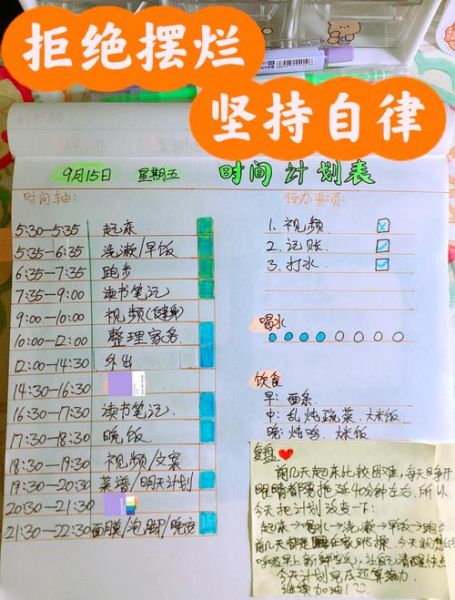 拒绝摆烂
坚持自律
9月15日 星期五 时间计划表
时间轴:
5:30-5:35 起床
5:35-6:35 洗漱/早饭
6:35-7:35 跑步
7:35-9:00 读书笔记
9:00-10:00 视频(健身)
10:00-12:00 整理家务
12:00-14:30 外出
14:30-16:30
16:30-17:30 读书笔记.
17:30-18:30 晚饭
18:30-19:30 视频/文案
19:30-20:30 菜谱/明天计划
20:30-21:30
21:30-22:30 面膜/泡脚/晚安
待办事项:
1. 视频
2. 记账
3. 打水
喝水
饮食
早: 面条
中: 乱炖蔬菜. 大米饭
晚: 炖鸡. 米饭
复盘
前几天起床比较困难,每天睁开
眼睛都要拖延40分钟左右,所以
今天把计划改变一下:
起床→喝水→洗漱→早饭→跑步
今天计划完成还算努力
继续加油!